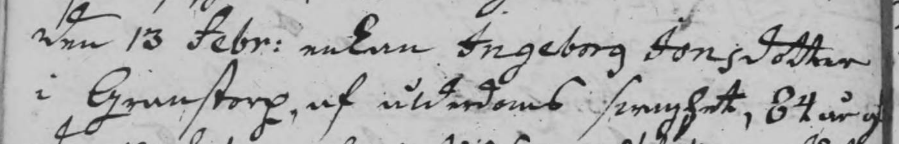 den 13 Febr: enkan Ingeborg Jonsdotter
i Granstorp, af ålderdoms swaghet, 84 år g